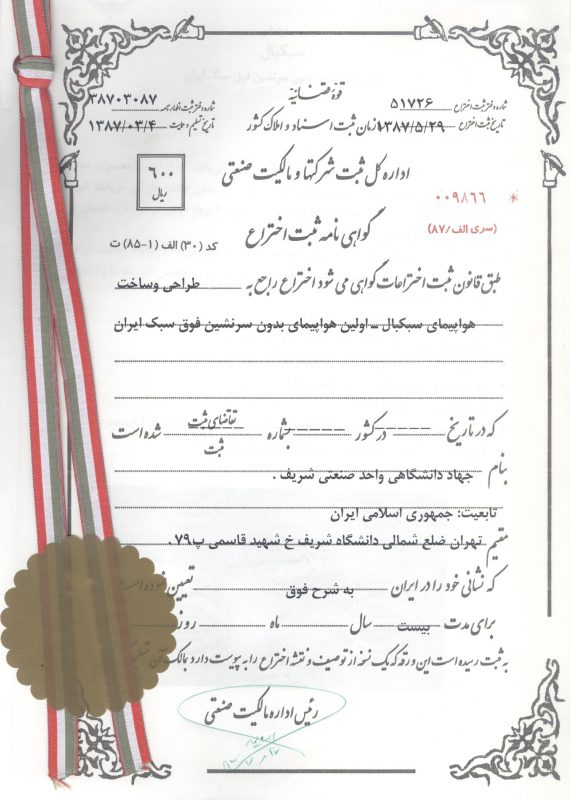 قوّه قضائیّه
شماره دفتر ثبت اختراع ۵۱۷۲۶
شماره دفتر ثبت اظهارنامه ۳۸۷۰۳۰۸۷
تاریخ ثبت اختراع ۱۳۸۷/۵/۲۹
زمان ثبت اسناد و املاک کشور
تاریخ تسلیم ۱۳۸۷/۰۳/۴
اداره کل ثبت شرکتها و مالکیت صنعتی
۶۰۰
ریال
* ۰۰۹۸۶۶
(سری الف/۸۷)
گواهی نامه ثبت اختراع
کد (۳۰) الف (۱-۸۵) ت
طبق قانون ثبت اختراعات گواهی می شود اختراع راجع به طراحی وساخت
هواپیمای سبکبال - اولین هواپیمای بدون سرنشین فوق سبک ایران
که در تاریخ در کشور بشماره تقاضای ثبت شده است
ثبت
بنام جهاد دانشگاهی واحد صنعتی شریف .
تابعیت: جمهوری اسلامی ایران
مقیم تهران ضلع شمالی دانشگاه شریف خ شهید قاسمی پ۷۹.
که نشانی خود را در ایران به شرح فوق تعیین نموده
برای مدت بیست سال ماه روز
به ثبت رسیده است این ورقه که یک نسخه از توصیف و نقشه اختراع را به پیوست دارد بمالک آن
رئیس اداره مالکیت صنعتی